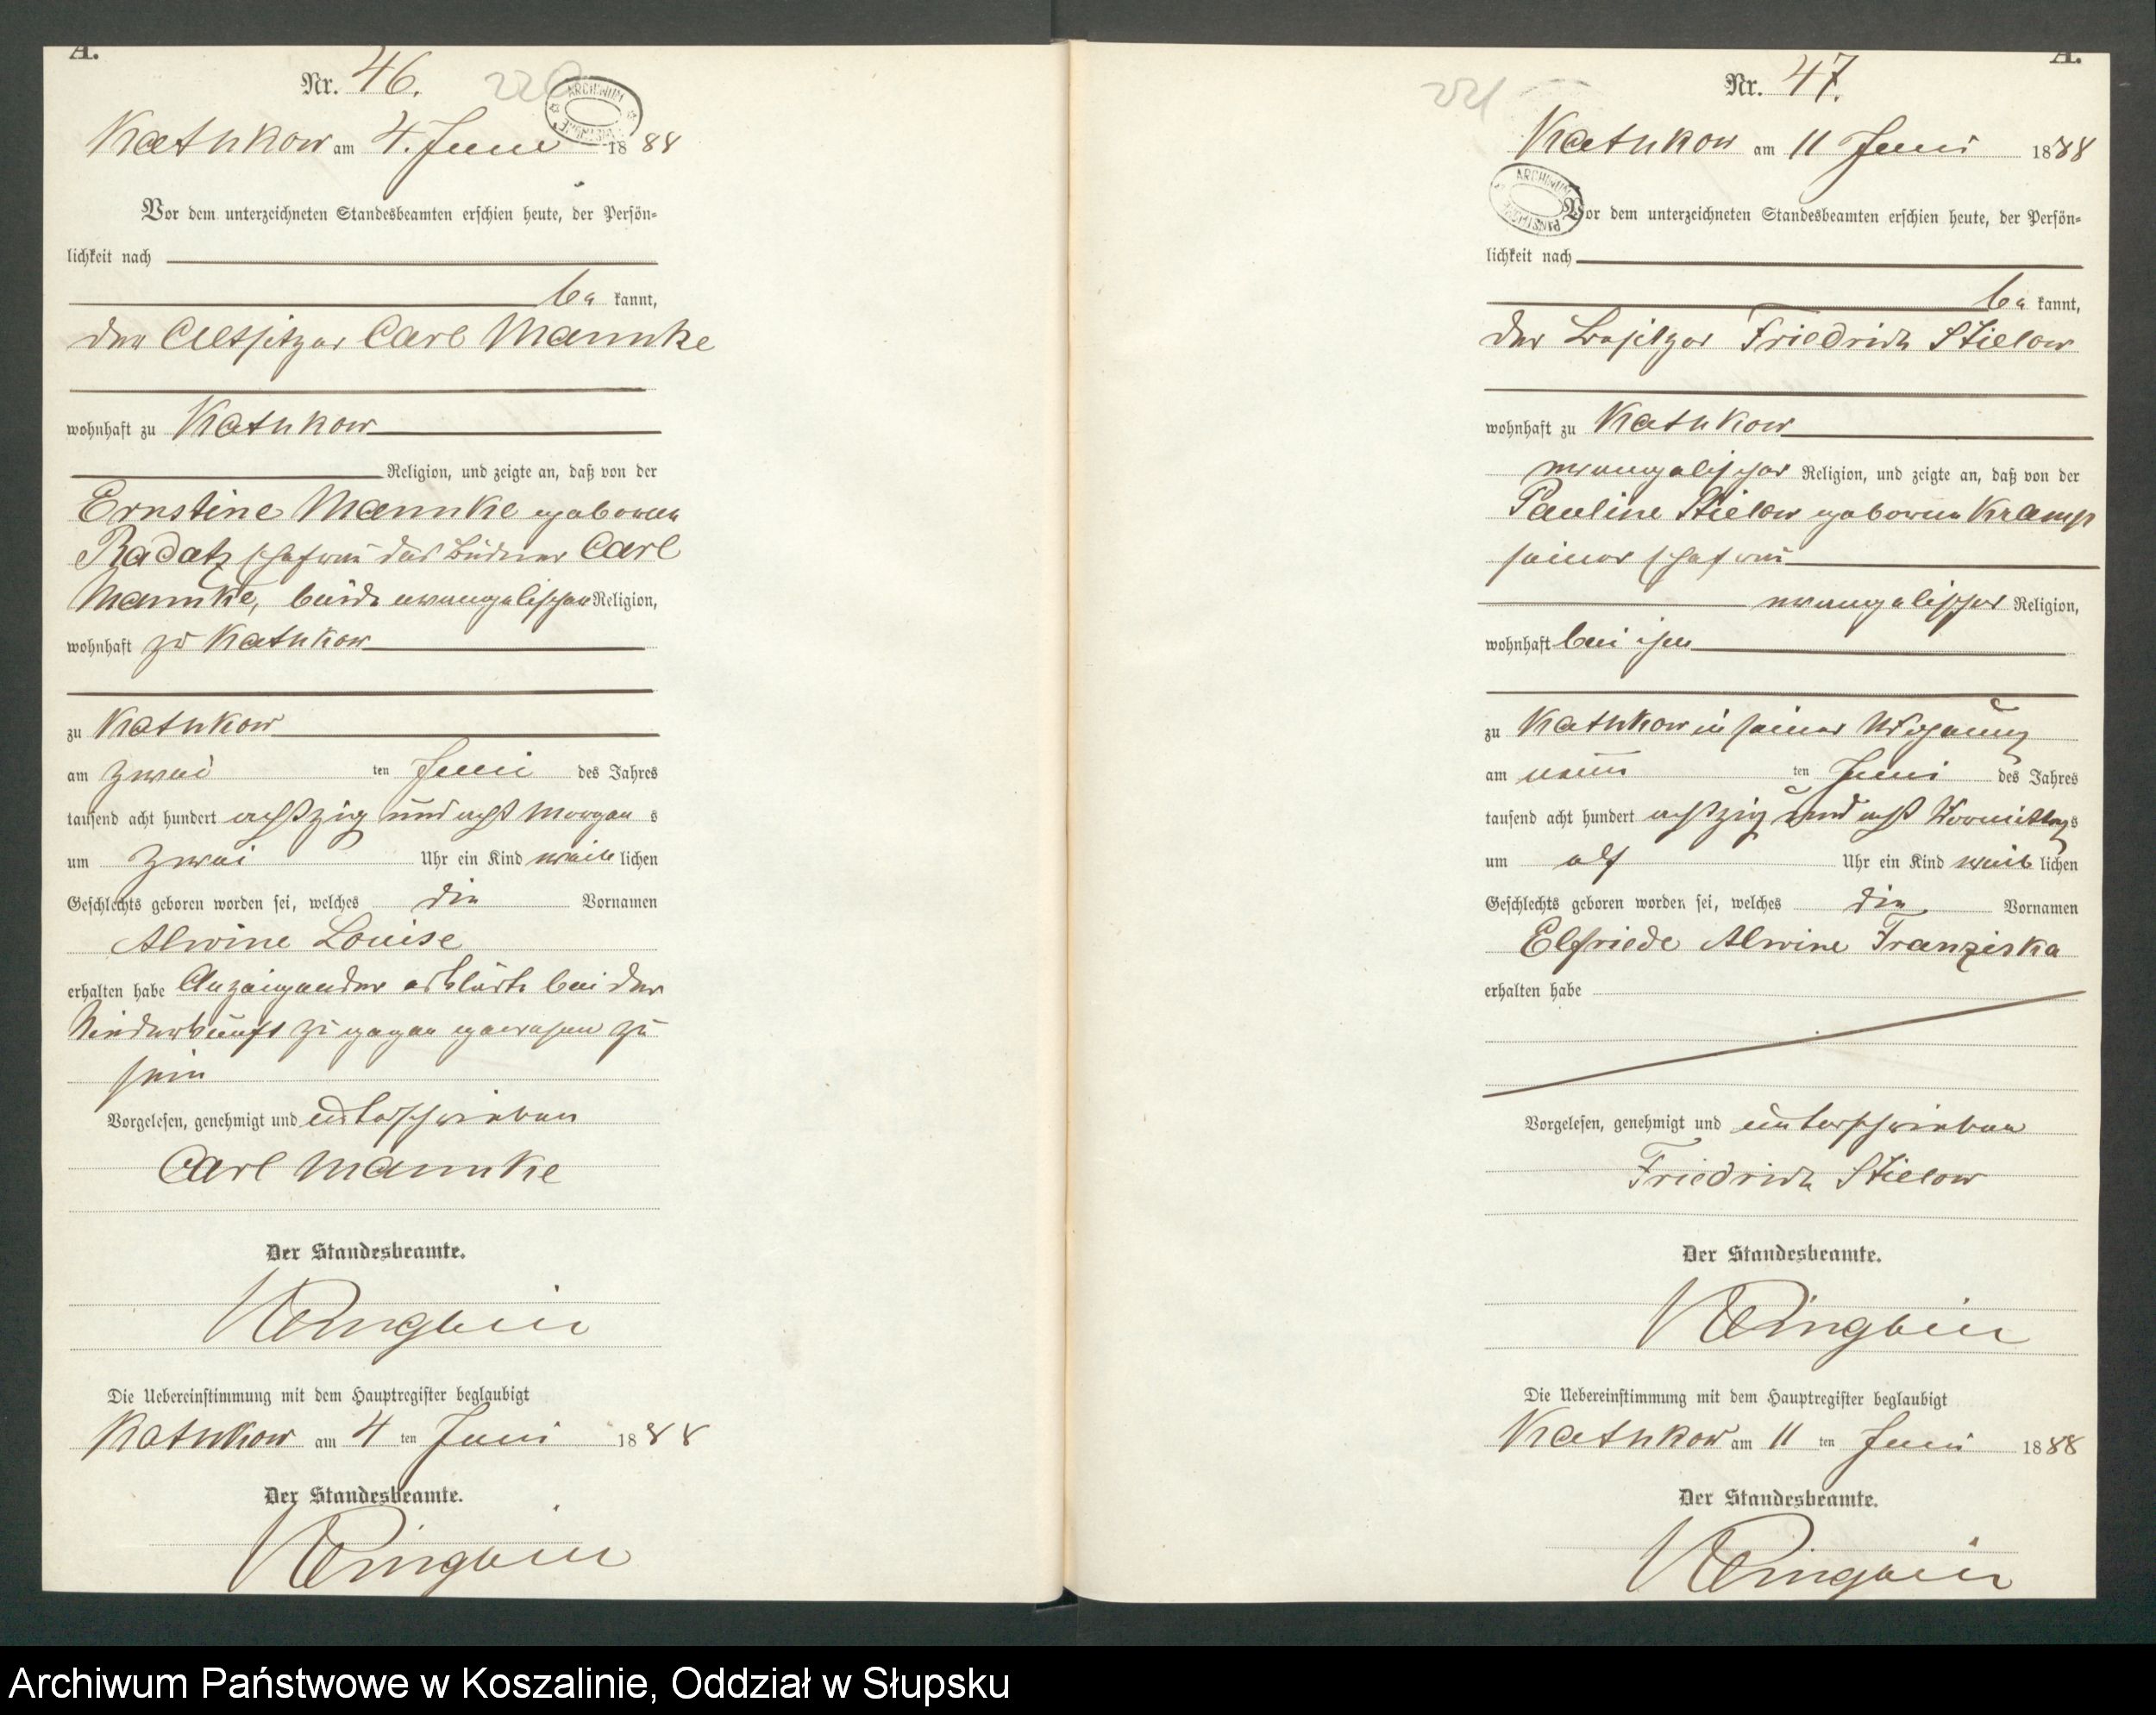 A.
Nr. 46.
220
ARCHIWUM
Kathkow am 4. Juni 1888
Vor dem unterzeichneten Standesbeamten erschien heute, der Persön=
lichkeit nach
be kannt,
der Altsitzer Carl Mannke
wohnhaft zu Kathkow
Religion, und zeigte an, daß von der
Ernstine Mannke geborenen
Radatz Ehefrau des Büdner Carl
Mannke, beide evangelischer Religion,
wohnhaft zu Kathkow
zu Kathkow
am zwei ten Juni des Jahres
tausend acht hundert achtzig und acht Morgens
um zwei Uhr ein Kind weiblichen
Geschlechts geboren worden sei, welches die Vornamen
Alwine Louise
erhalten habe Anzeigender erklärte bei der
Niederkunft zugegen gewesen zu
sein
Vorgelesen, genehmigt und unterschrieben
Carl Mannke
Der Standesbeamte.
Die Uebereinstimmung mit dem Hauptregister beglaubigt
Kathkow am 4 ten Juni 1888
Der Standesbeamte.
A.
Nr. 47.
221
Kathkow am 11 Juni 1888
ARCHIWUM PAŃSTWOWE
Vor dem unterzeichneten Standesbeamten erschien heute, der Persön=
lichkeit nach
be kannt,
der Besitzer Friedrich Stielow
wohnhaft zu Kathkow
evangelischer Religion, und zeigte an, daß von der
Pauline Stielow geborenen Kramp
seiner Ehefrau
evangelischer Religion,
wohnhaft bei ihm
zu Kathkow in seiner Wohnung
am neun ten Juni des Jahres
tausend acht hundert achtzig und acht Vormittags
um elf Uhr ein Kind weiblichen
Geschlechts geboren worden sei, welches die Vornamen
Elfriede Alwine Franziska
erhalten habe
Vorgelesen, genehmigt und unterschrieben
Friedrich Stielow
Der Standesbeamte.
Die Uebereinstimmung mit dem Hauptregister beglaubigt
Kathkow am 11 ten Juni 1888
Der Standesbeamte.
Archiwum Państwowe w Koszalinie, Oddział w Słupsku